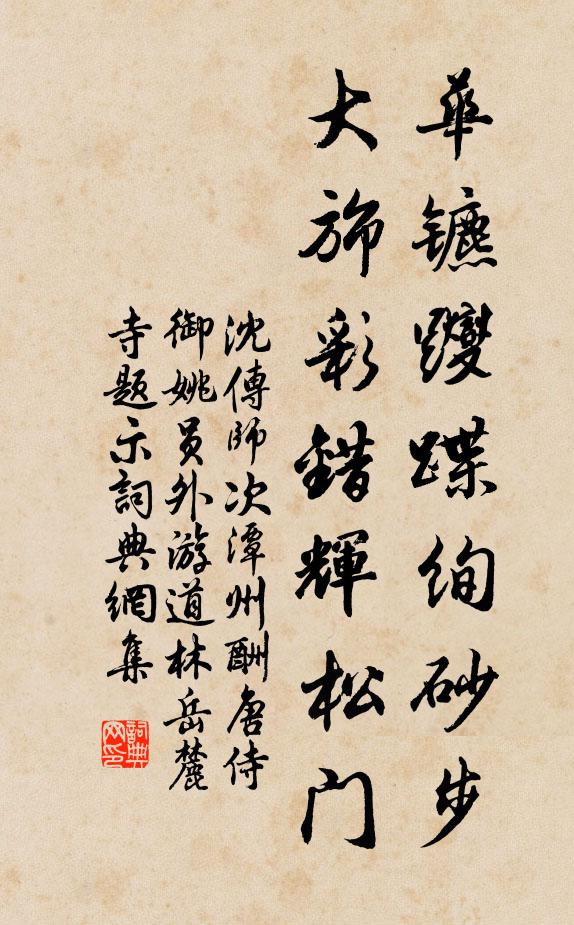 華鑣躞蹀絢砂步
大旆彩錯輝松門
沈傳師次潭州酬唐侍
御姚員外游道林岳麓
寺題示詞典網集
詞典
网印